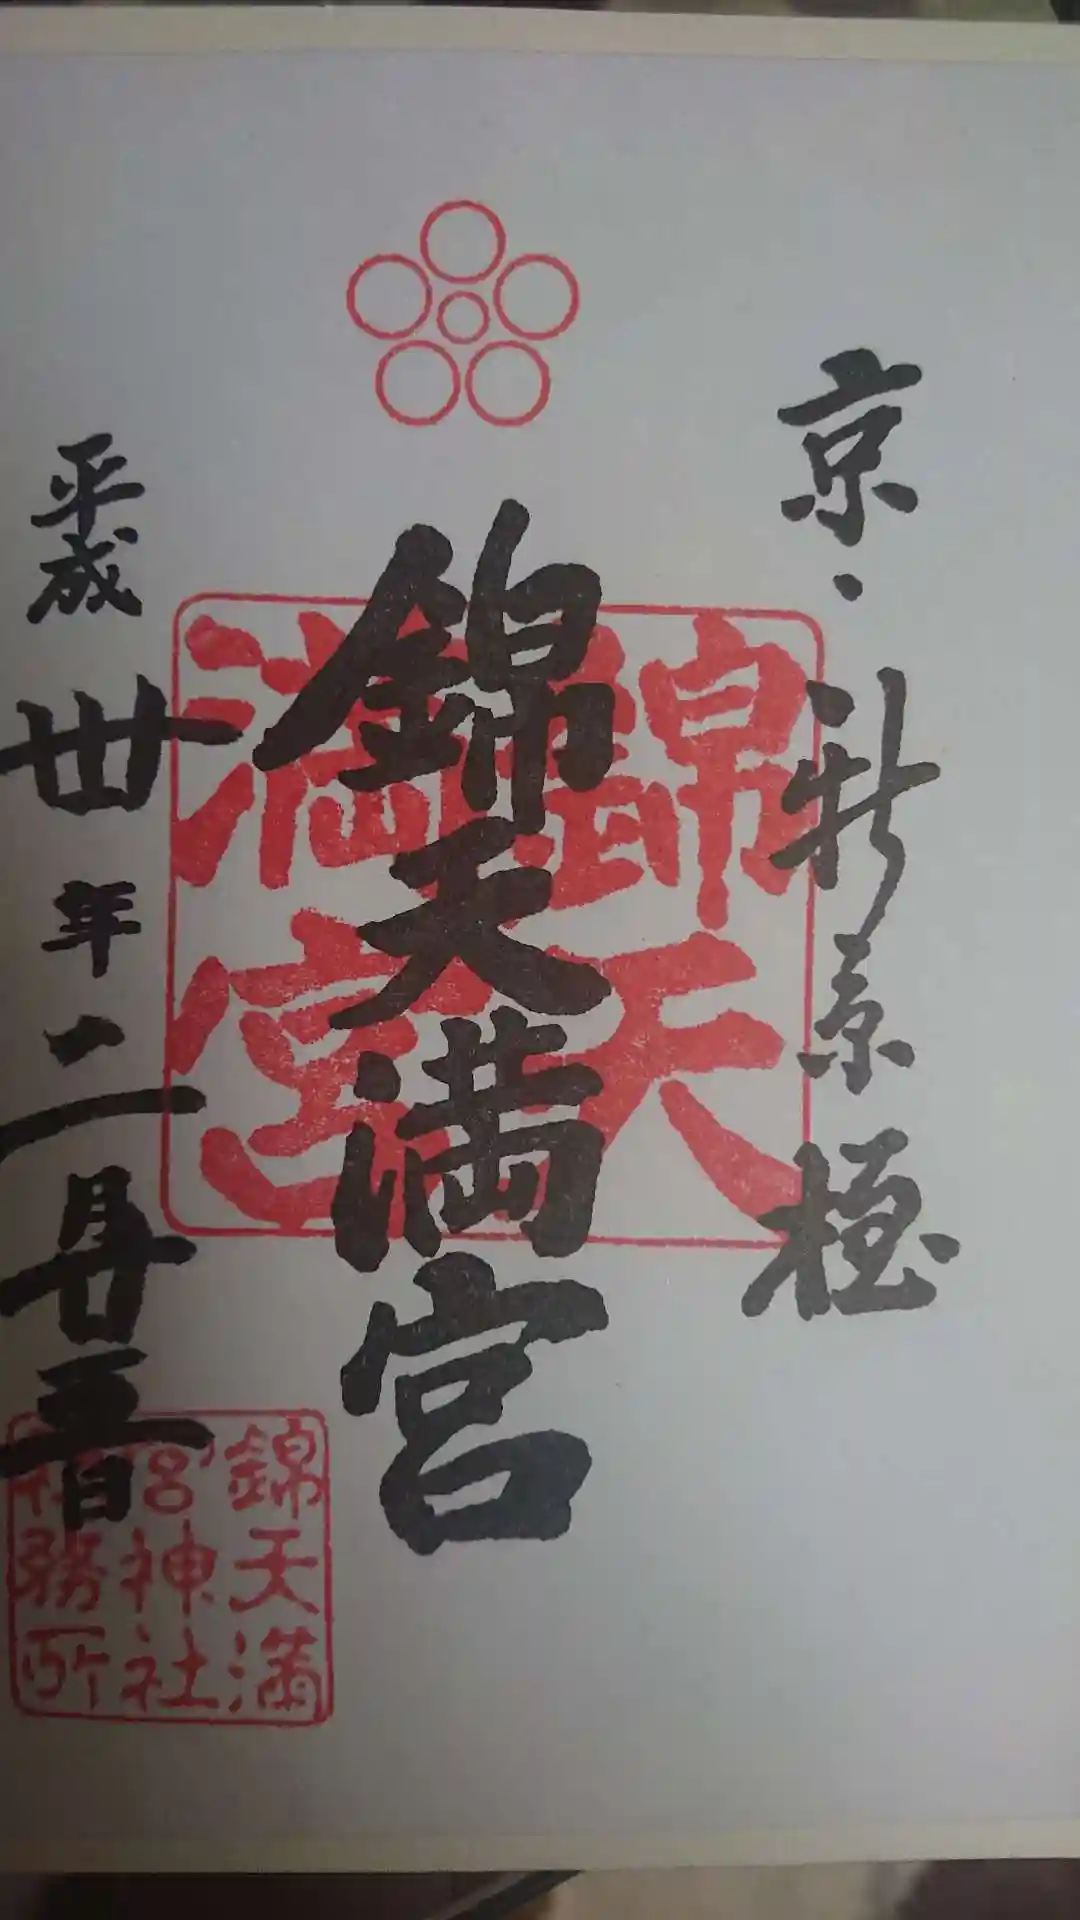 京・新京極
錦天満宮
錦天
満宮
平成卅年二月廿五日
錦天満
宮神社
務所